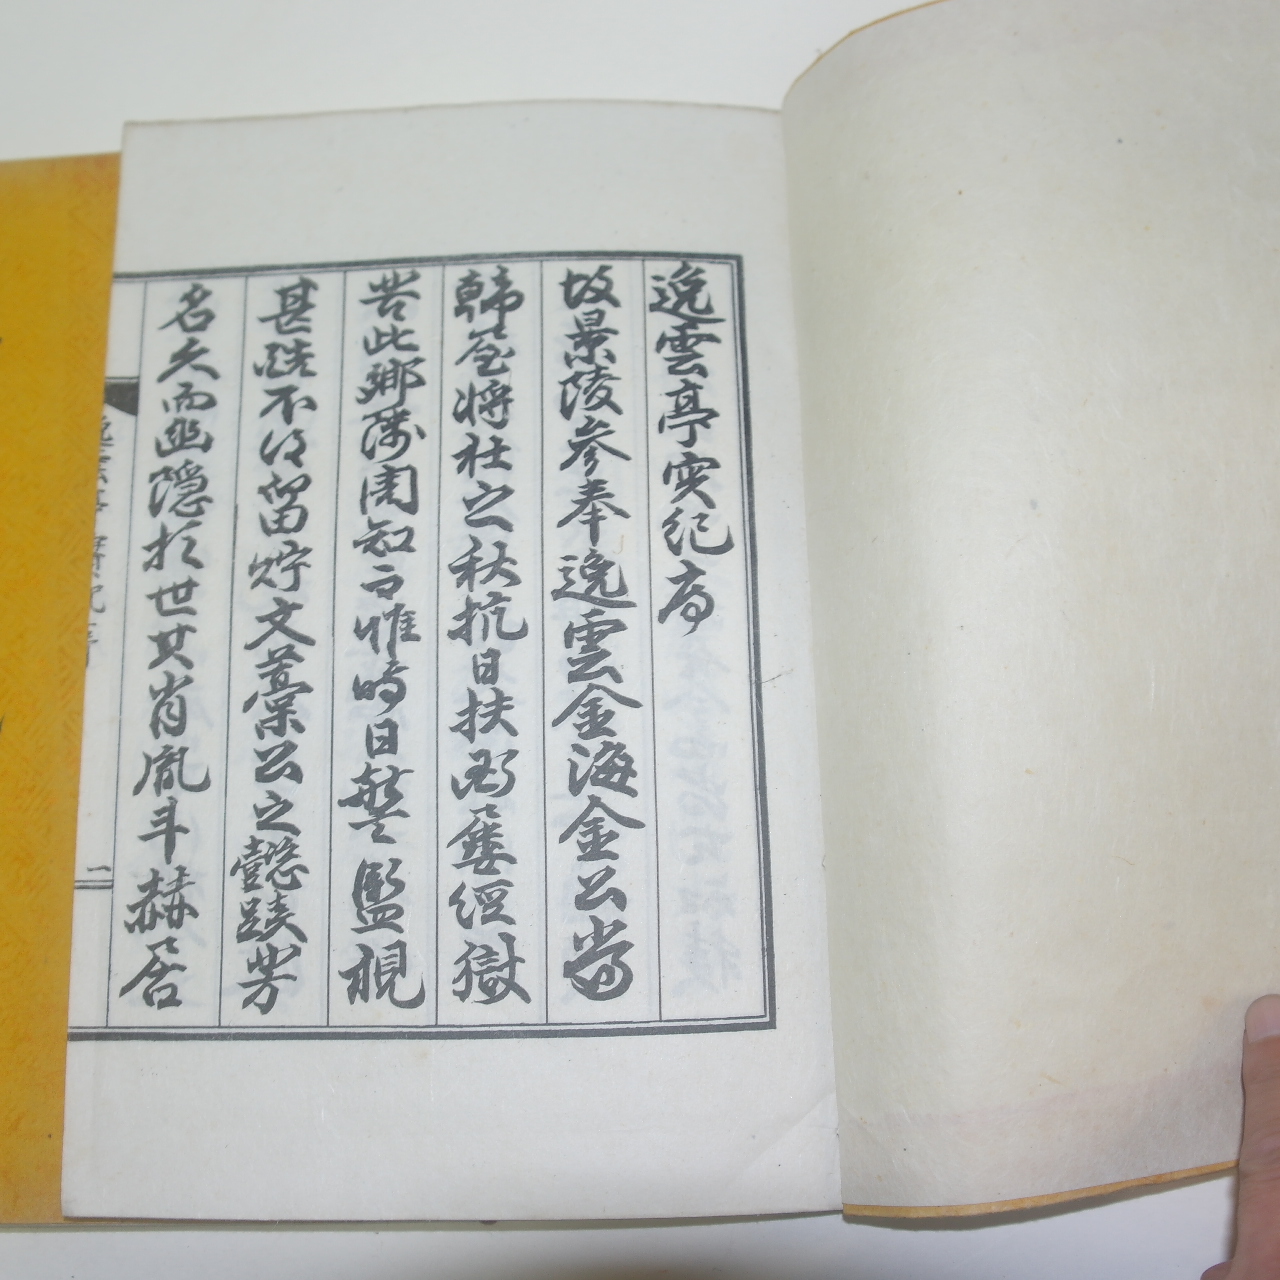 逸雲亭实紀序
故景陵參奉逸雲金海金公當
韓屋將社之秋抗日扶國屢經獄
苦此鄉隣周知而惟時日警監視
甚酷不得留貯文藁公之懿蹟芳
名久而幽隱於世其肖胤斗赫居
逸雲亭實紀序 一